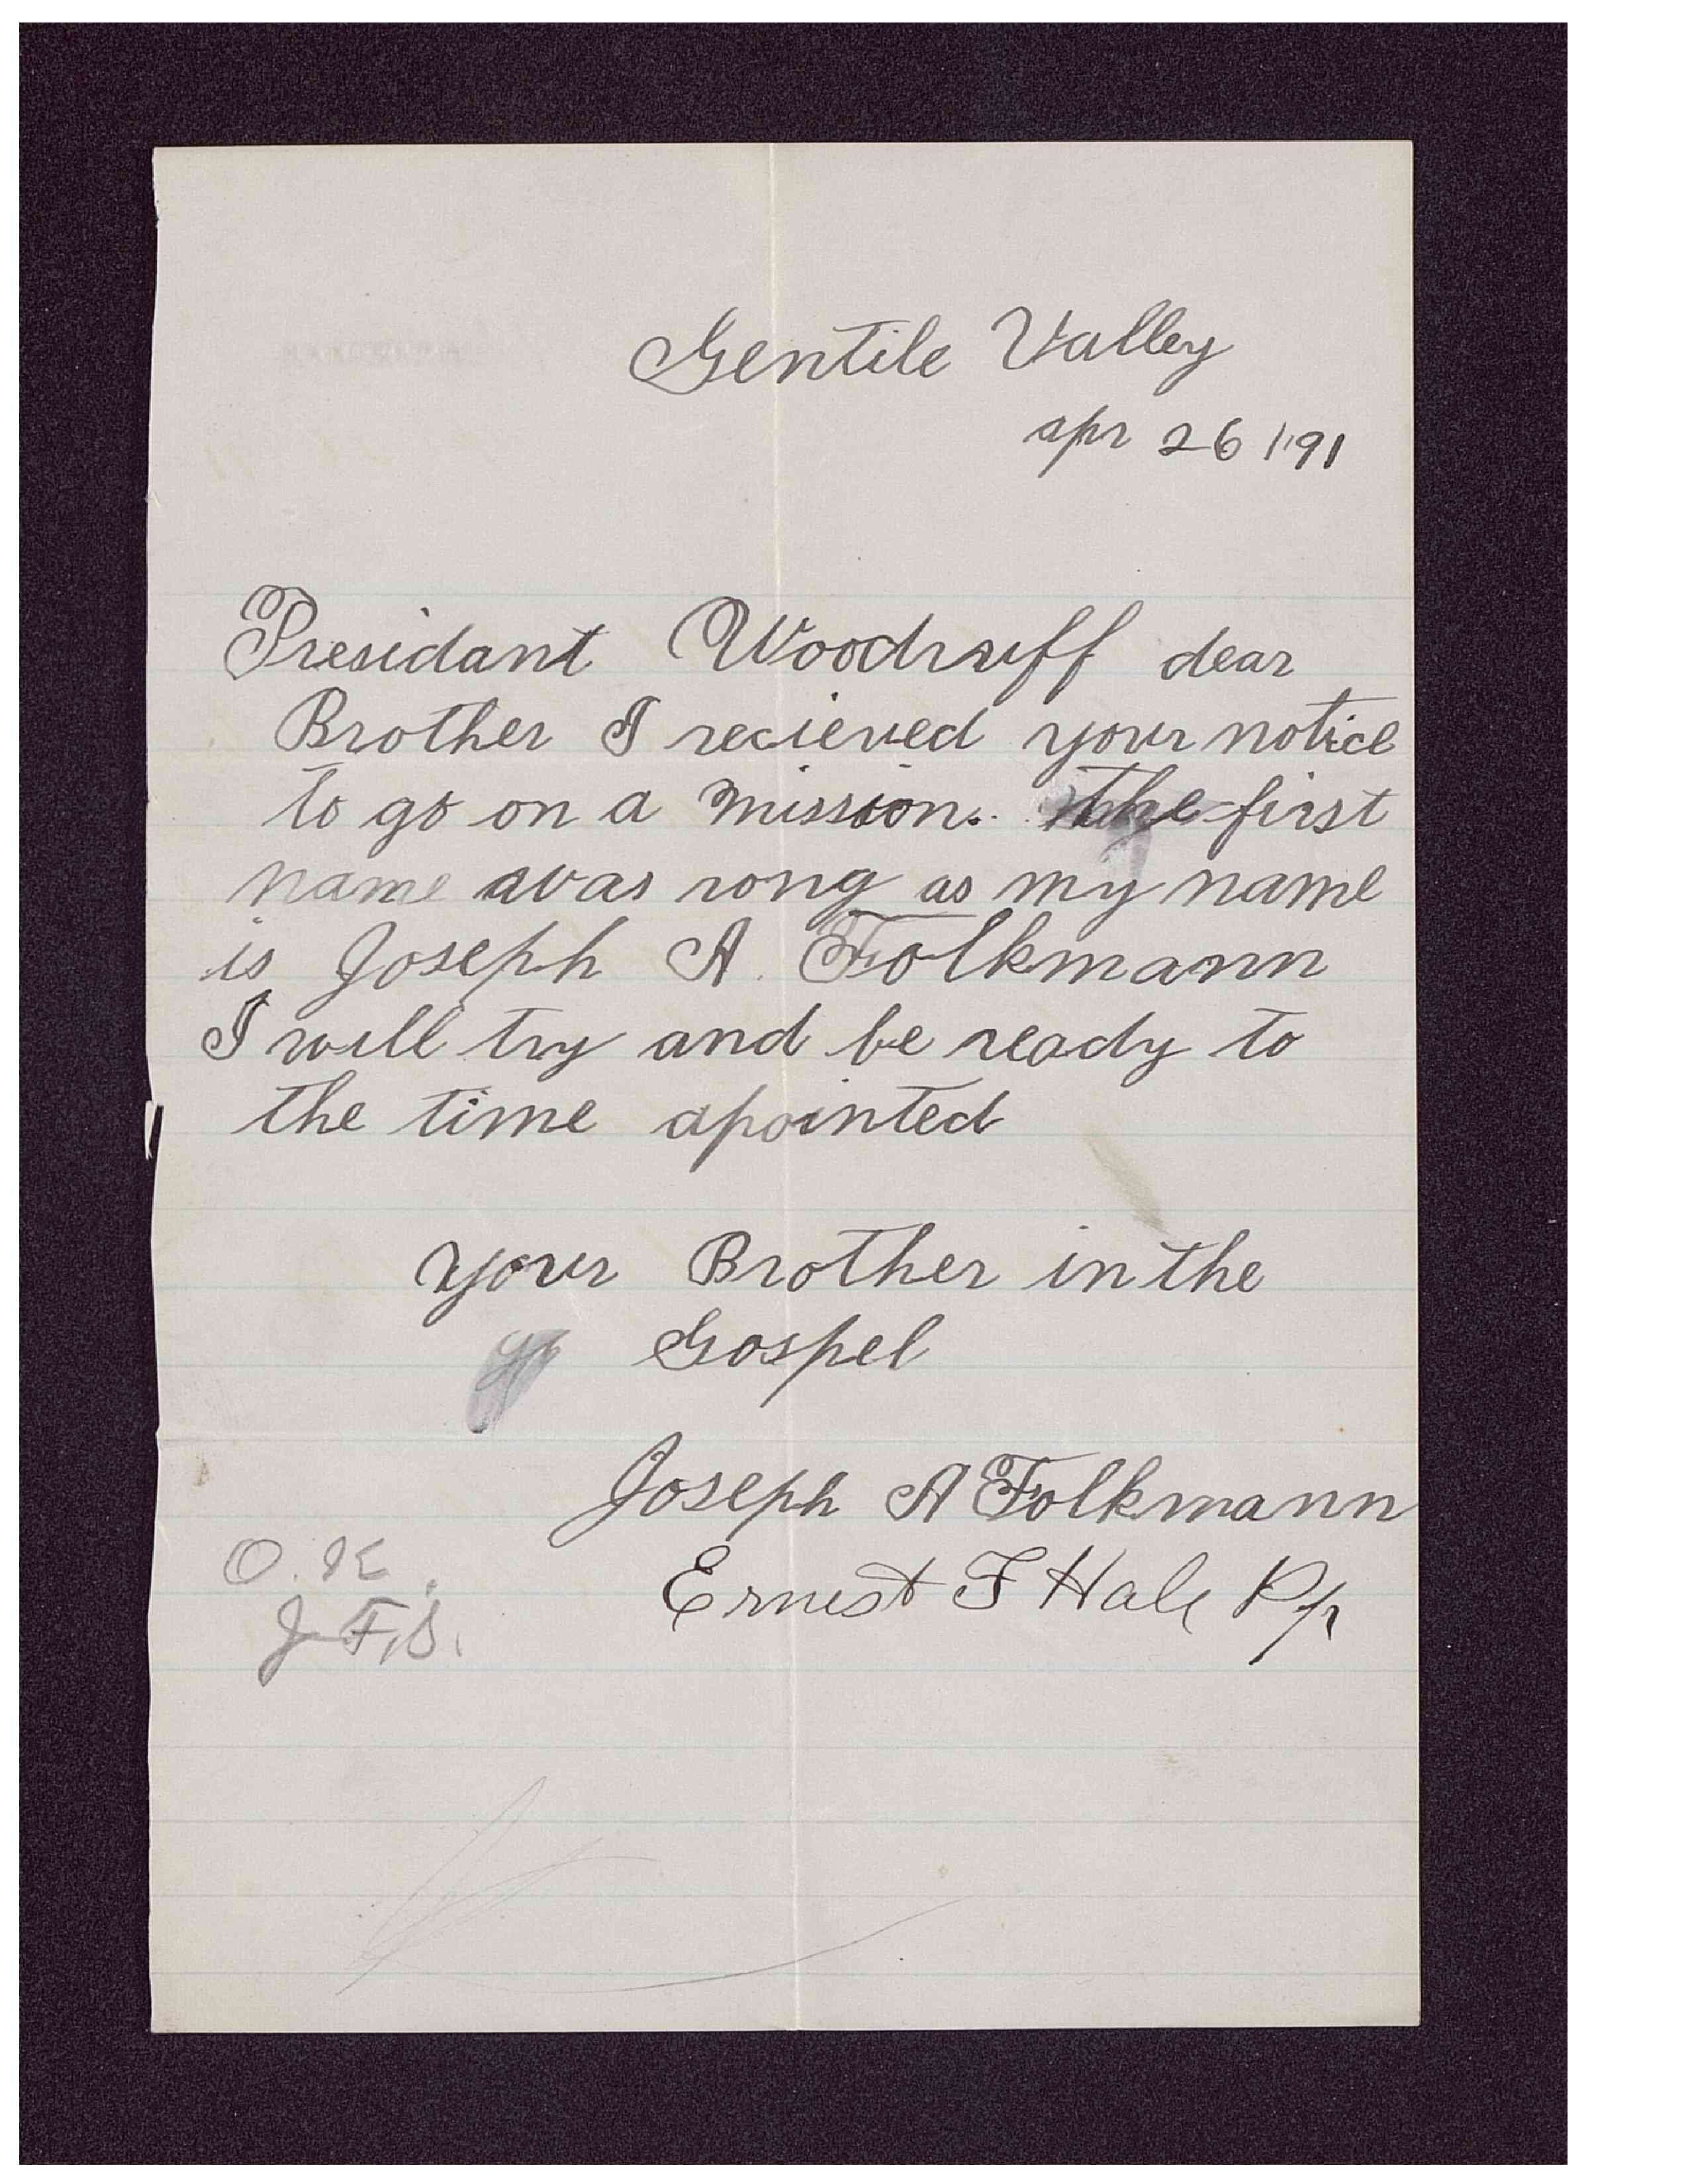 Gentile Valley
apr 26 1891
Presidant Woodruff dear
Brother I recieved your notice
to go on a mission. the first
name was rong as my name
is Joseph A. Folkmann
I will try and be ready to
the time apointed
your Brother in the
Gospel
Joseph A Folkmann
O. K. Ernest F Hale Pp
J. F. S.